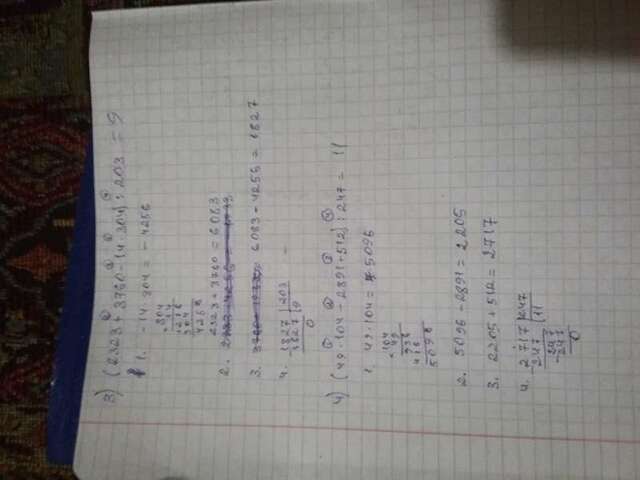 3) (2323 + 3760 - 14·304) : 203 = 9
1. -14·304 = -4256
304
14
1216
304
4256
2. 2323 + 3760 = 6083
3. 6083 - 4256 = 1827
4. 1827 | 203
1827 | 9
0
4) (49·104 - 2891 + 512) : 247 = 11
1. 49·104 = 5096
104
49
936
416
5096
2. 5096 - 2891 = 2205
3. 2205 + 512 = 2717
4. 2717 | 247
247 | 11
247
247
0